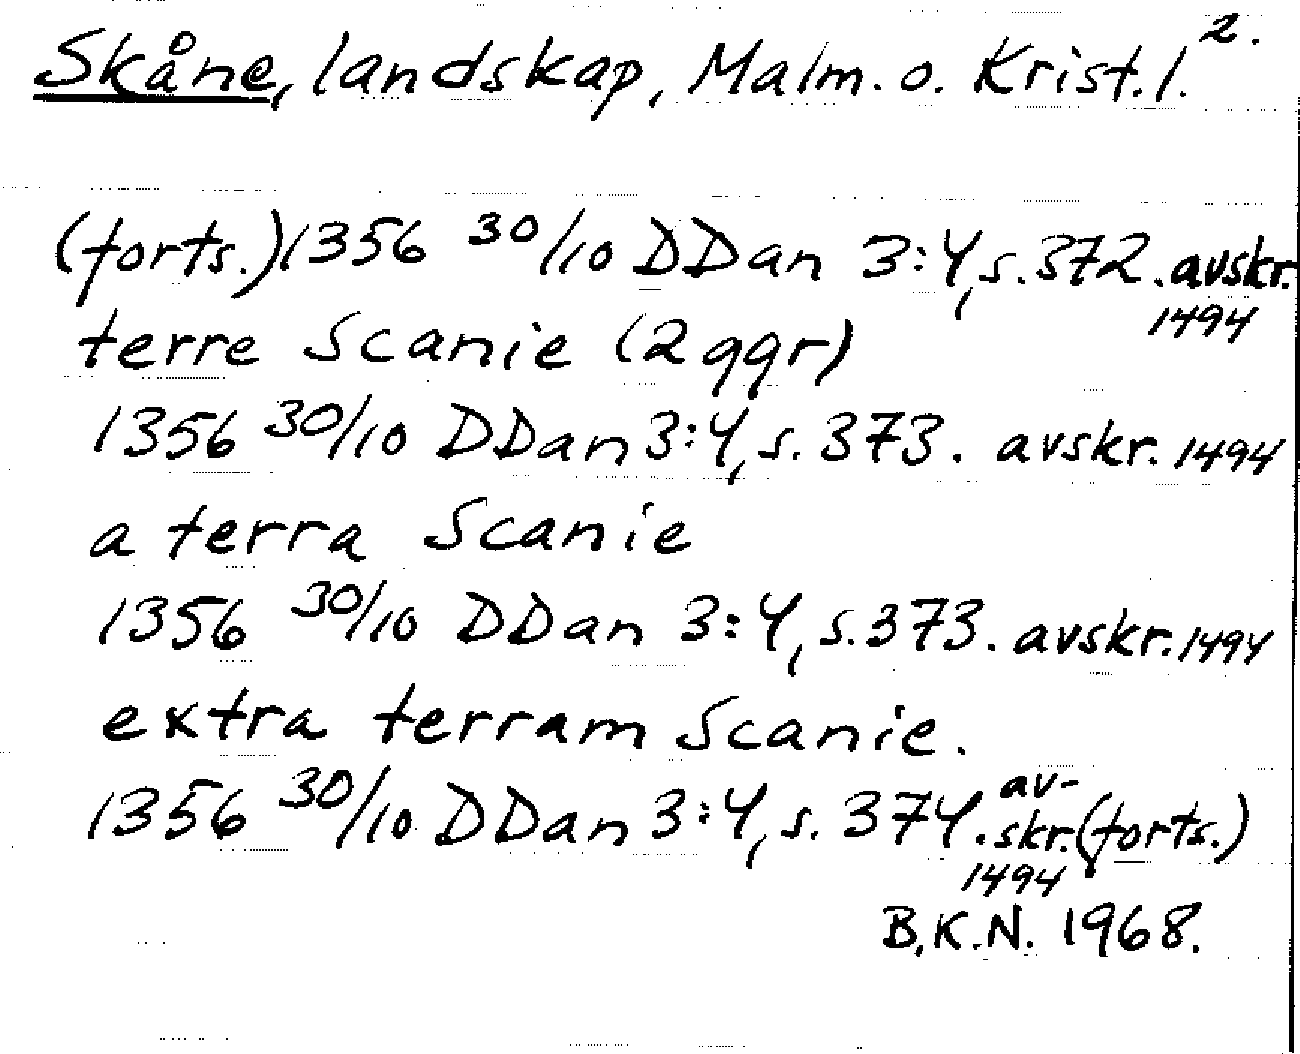 Skåne, landskap, Malm. o. Krist. l. 2.
(forts.) 1356 30/10 DDan 3:4, s. 372. avskr. 1494
terre Scanie (2 ggr)
1356 30/10 DDan 3:4, s. 373. avskr. 1494
a terra Scanie
1356 30/10 DDan 3:4, s. 373. avskr. 1494
extra terram Scanie.
1356 30/10 DDan 3:4, s. 374. av-
skr. (forts.)
1494
B.K.N. 1968.